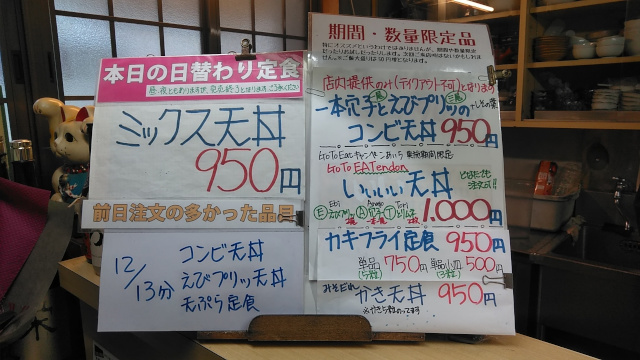 本日の日替わり定食
ミックス天丼
950円
前日注文の多かった品目
12/13分
コンビ天丼
えびプリッ天丼
天ぷら定食
期間・数量限定品
店内提供のみ(テイクアウト不可)となります
一本穴子とえびプリッの
コンビ天丼 950円
GoToEatキャンペーンあいち 実施期間限定
GoTo EATendon
いいいい天丼
Ebi Anago Tori
1.000円
カキフライ定食 950円
単品 750円 単品小皿 500円
(5粒) (3粒)
みそだれ かき天丼 950円